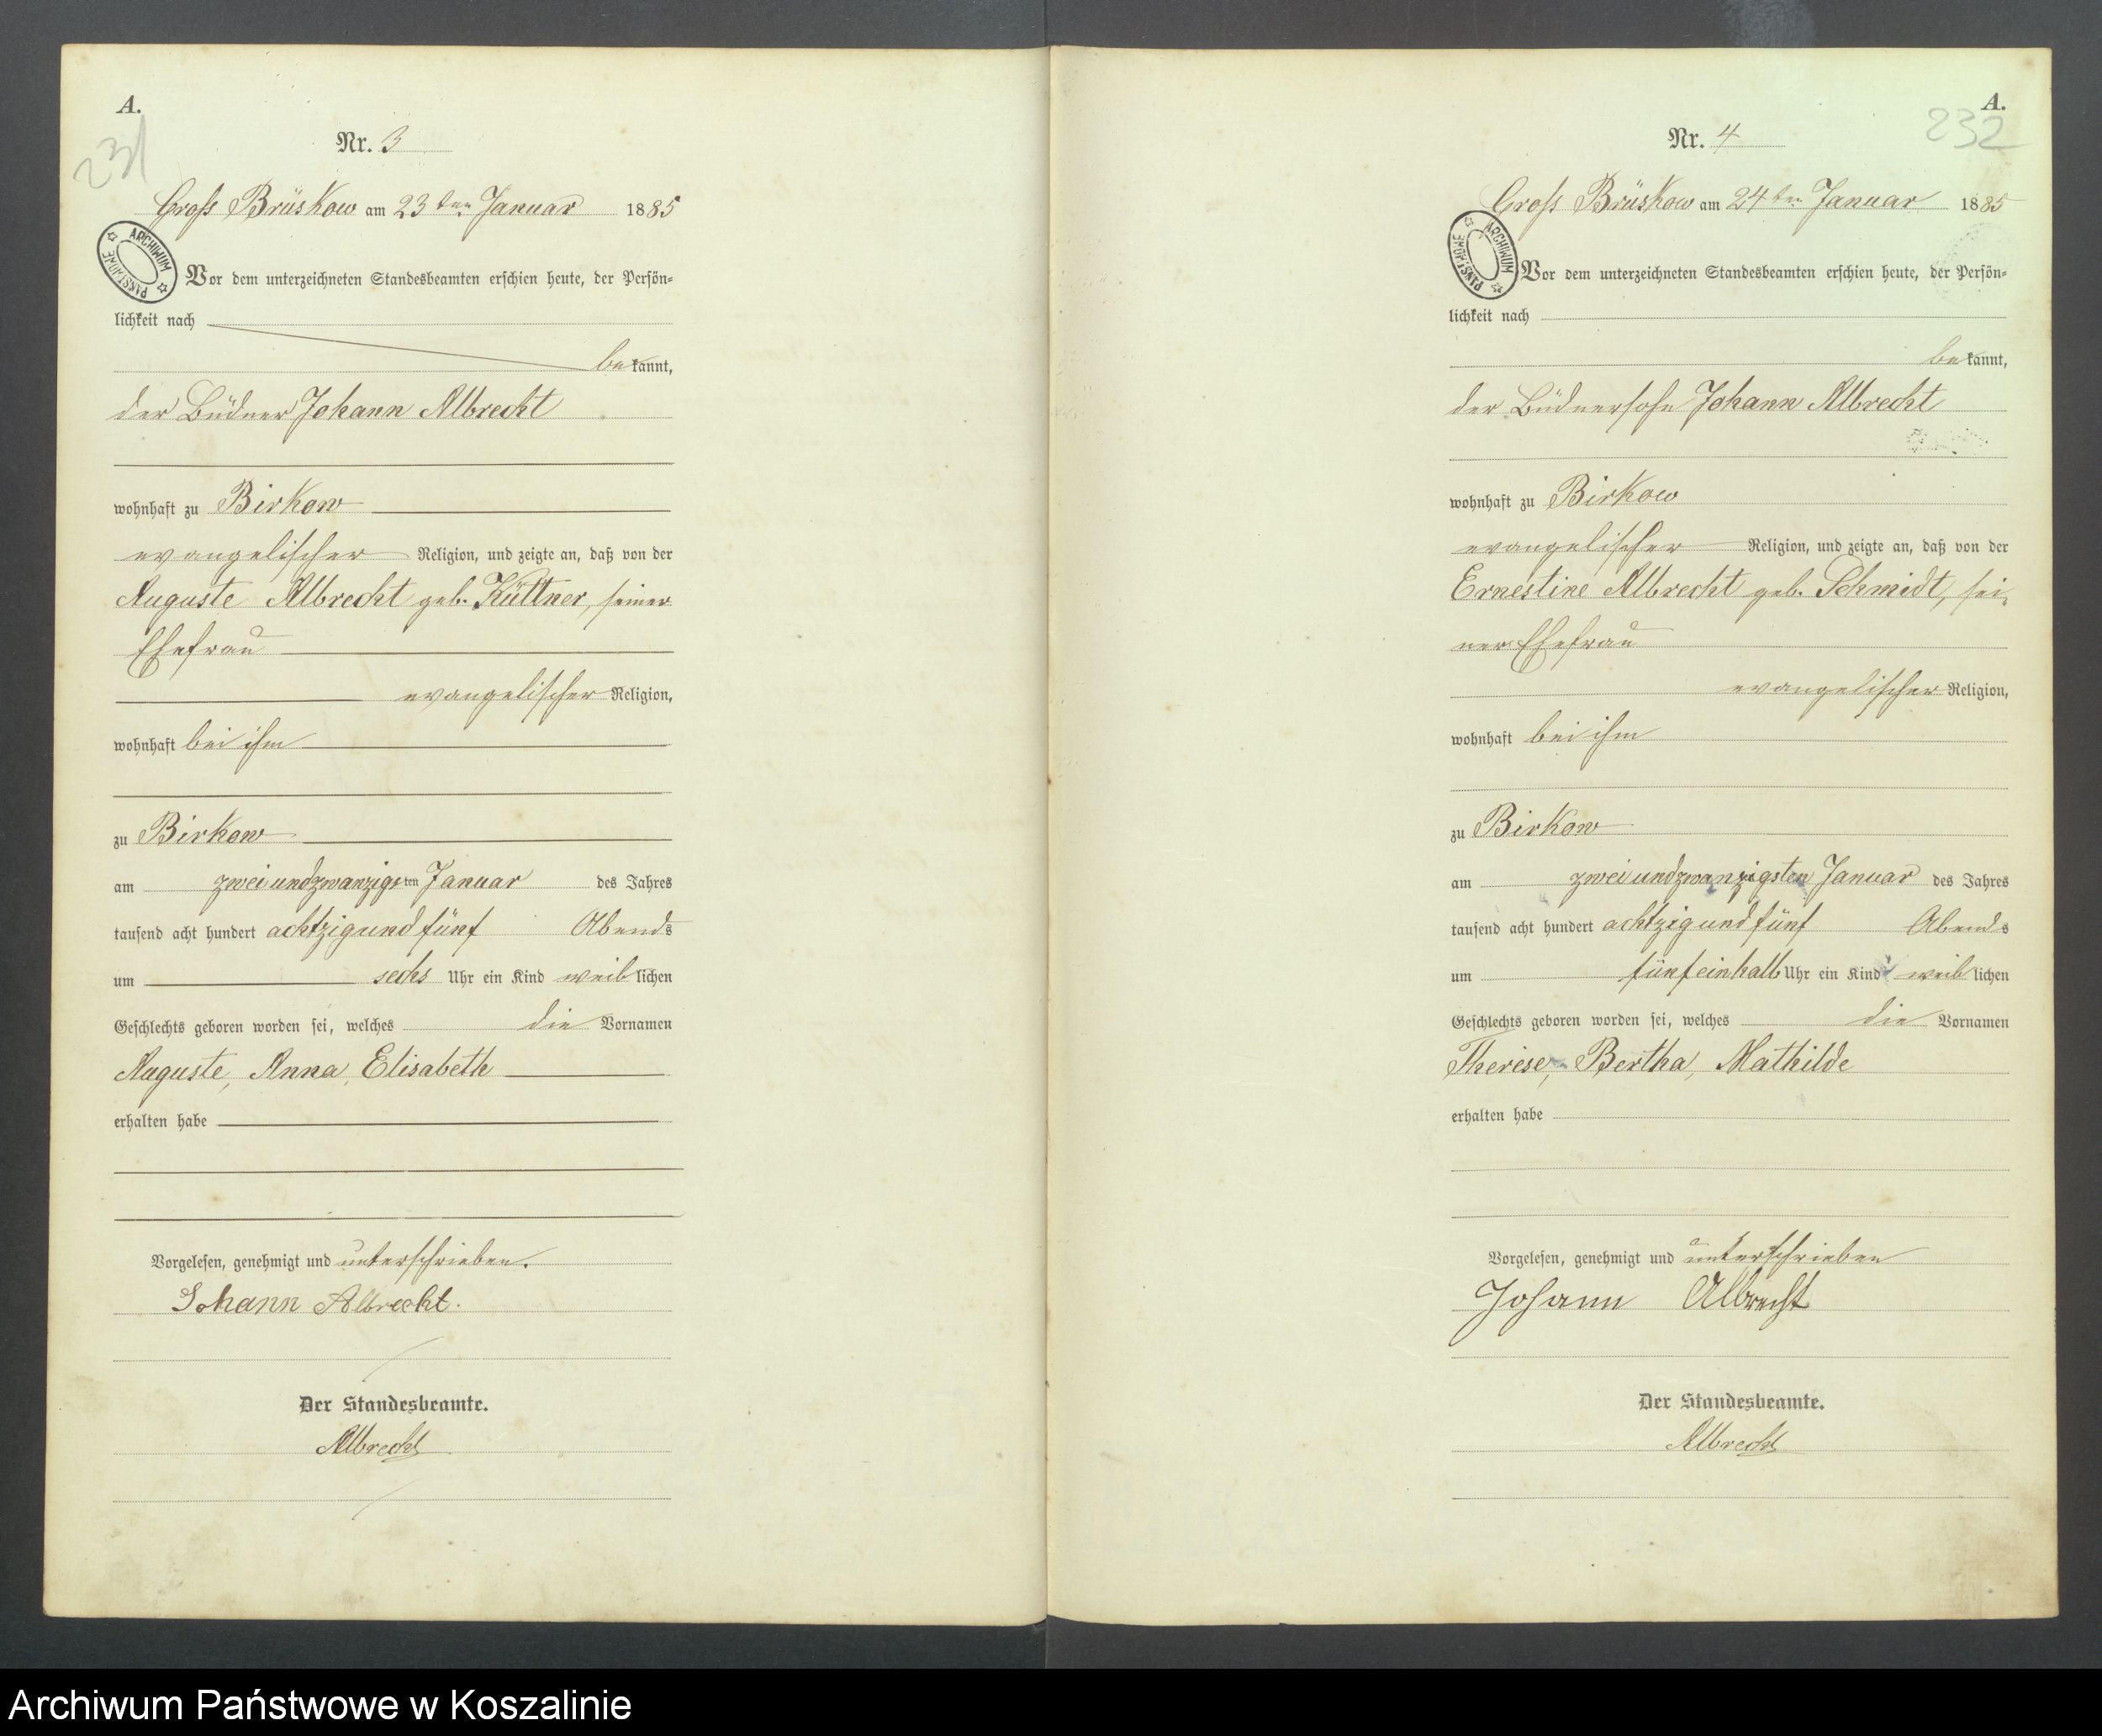 A.
231
Nr. 3
Groß Brüskow am 23ten Januar 1885
ARCHIWUM PAŃSTWOWE
Vor dem unterzeichneten Standesbeamten erschien heute, der Persön=
lichkeit nach
bekannt,
der Büdner Johann Albrecht
wohnhaft zu Birkow
evangelischer Religion, und zeigte an, daß von der
Auguste Albrecht geb. Küttner, seiner
Ehefrau
evangelischer Religion,
wohnhaft bei ihm
zu Birkow
am zweiundzwanzigsten Januar des Jahres
tausend acht hundert achtzigundfünf Abends
um sechs Uhr ein Kind weiblichen
Geschlechts geboren worden sei, welches die Vornamen
Auguste, Anna, Elisabeth
erhalten habe
Vorgelesen, genehmigt und unterschrieben.
Johann Albrecht.
Der Standesbeamte.
Albrecht
A.
232
Nr. 4
Groß Brüskow am 24ten Januar 1885
ARCHIWUM PAŃSTWOWE
Vor dem unterzeichneten Standesbeamten erschien heute, der Persön=
lichkeit nach
bekannt,
der Büdnersohn Johann Albrecht
wohnhaft zu Birkow
evangelischer Religion, und zeigte an, daß von der
Ernestine Albrecht geb. Schmidt, sei-
ner Ehefrau
evangelischer Religion,
wohnhaft bei ihm
zu Birkow
am zweiundzwanzigsten Januar des Jahres
tausend acht hundert achtzigundfünf Abends
um fünfeinhalb Uhr ein Kind weiblichen
Geschlechts geboren worden sei, welches die Vornamen
Therese, Bertha, Mathilde
erhalten habe
Vorgelesen, genehmigt und unterschrieben
Johann Albrecht
Der Standesbeamte.
Albrecht
Archiwum Państwowe w Koszalinie